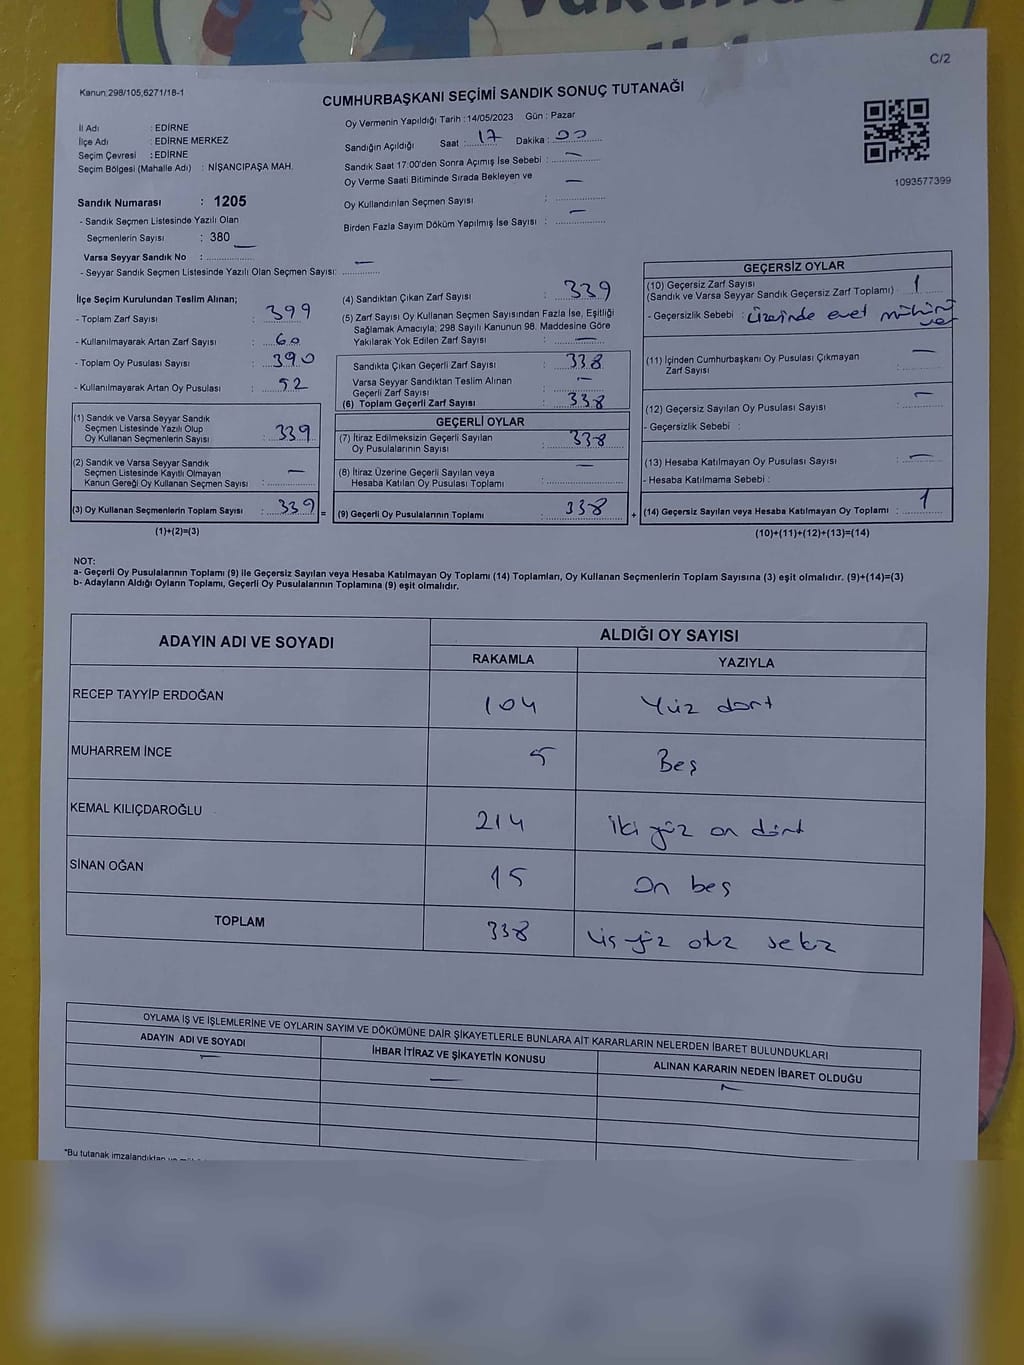 C/2
Kanun:298/105,6271/18-1
CUMHURBAŞKANI SEÇİMİ SANDIK SONUÇ TUTANAĞI
İl Adı : EDİRNE
İlçe Adı : EDİRNE MERKEZ
Seçim Çevresi : EDİRNE
Seçim Bölgesi (Mahalle Adı) : NİŞANCIPAŞA MAH.
Sandık Numarası : 1205
- Sandık Seçmen Listesinde Yazılı Olan
Seçmenlerin Sayısı : 380
Varsa Seyyar Sandık No : —
- Seyyar Sandık Seçmen Listesinde Yazılı Olan Seçmen Sayısı: —
Oy Vermenin Yapıldığı Tarih :14/05/2023 Gün : Pazar
Sandığın Açıldığı Saat : 17 Dakika : 00
Sandık Saat 17:00'den Sonra Açımış İse Sebebi : —
Oy Verme Saati Bitiminde Sırada Bekleyen ve
Oy Kullandırılan Seçmen Sayısı : —
Birden Fazla Sayım Döküm Yapılmış İse Sayısı : —
1093577399
İlçe Seçim Kurulundan Teslim Alınan;
- Toplam Zarf Sayısı : 399
- Kullanılmayarak Artan Zarf Sayısı : 60
- Toplam Oy Pusulası Sayısı : 390
- Kullanılmayarak Artan Oy Pusulası : 52
(1) Sandık ve Varsa Seyyar Sandık
Seçmen Listesinde Yazılı Olup
Oy Kullanan Seçmenlerin Sayısı : 339
(2) Sandık ve Varsa Seyyar Sandık
Seçmen Listesinde Kayıtlı Olmayan
Kanun Gereği Oy Kullanan Seçmen Sayısı : —
(3) Oy Kullanan Seçmenlerin Toplam Sayısı : 339 =
(1)+(2)=(3)
(4) Sandıktan Çıkan Zarf Sayısı : 339
(5) Zarf Sayısı Oy Kullanan Seçmen Sayısından Fazla İse, Eşitliği
Sağlamak Amacıyla; 298 Sayılı Kanunun 98. Maddesine Göre
Yakılarak Yok Edilen Zarf Sayısı : —
Sandıkta Çıkan Geçerli Zarf Sayısı : 338
Varsa Seyyar Sandıktan Teslim Alınan
Geçerli Zarf Sayısı : —
(6) Toplam Geçerli Zarf Sayısı : 338
GEÇERLİ OYLAR
(7) İtiraz Edilmeksizin Geçerli Sayılan
Oy Pusulalarının Sayısı : 338
(8) İtiraz Üzerine Geçerli Sayılan veya
Hesaba Katılan Oy Pusulası Toplamı : —
(9) Geçerli Oy Pusulalarının Toplamı : 338 +
GEÇERSİZ OYLAR
(10) Geçersiz Zarf Sayısı
(Sandık ve Varsa Seyyar Sandık Geçersiz Zarf Toplamı) : 1
- Geçersizlik Sebebi : Üzerinde evet mührü
var
(11) İçinden Cumhurbaşkanı Oy Pusulası Çıkmayan
Zarf Sayısı : —
(12) Geçersiz Sayılan Oy Pusulası Sayısı : —
- Geçersizlik Sebebi :
(13) Hesaba Katılmayan Oy Pusulası Sayısı : —
- Hesaba Katılmama Sebebi :
(14) Geçersiz Sayılan veya Hesaba Katılmayan Oy Toplamı : 1
(10)+(11)+(12)+(13)=(14)
NOT:
a- Geçerli Oy Pusulalarının Toplamı (9) ile Geçersiz Sayılan veya Hesaba Katılmayan Oy Toplamı (14) Toplamları, Oy Kullanan Seçmenlerin Toplam Sayısına (3) eşit olmalıdır. (9)+(14)=(3)
b- Adayların Aldığı Oyların Toplamı, Geçerli Oy Pusulalarının Toplamına (9) eşit olmalıdır.
ADAYIN ADI VE SOYADI ALDIĞI OY SAYISI
RAKAMLA YAZIYLA
RECEP TAYYİP ERDOĞAN 104 Yüz dört
MUHARREM İNCE 5 Beş
KEMAL KILIÇDAROĞLU 214 iki yüz on dört
SİNAN OĞAN 15 On beş
TOPLAM 338 üç yüz otuz sekiz
OYLAMA İŞ VE İŞLEMLERİNE VE OYLARIN SAYIM VE DÖKÜMÜNE DAİR ŞİKAYETLERLE BUNLARA AİT KARARLARIN NELERDEN İBARET BULUNDUKLARI
ADAYIN ADI VE SOYADI İHBAR İTİRAZ VE ŞİKAYETİN KONUSU ALINAN KARARIN NEDEN İBARET OLDUĞU
— — —
"Bu tutanak imzalandıktan